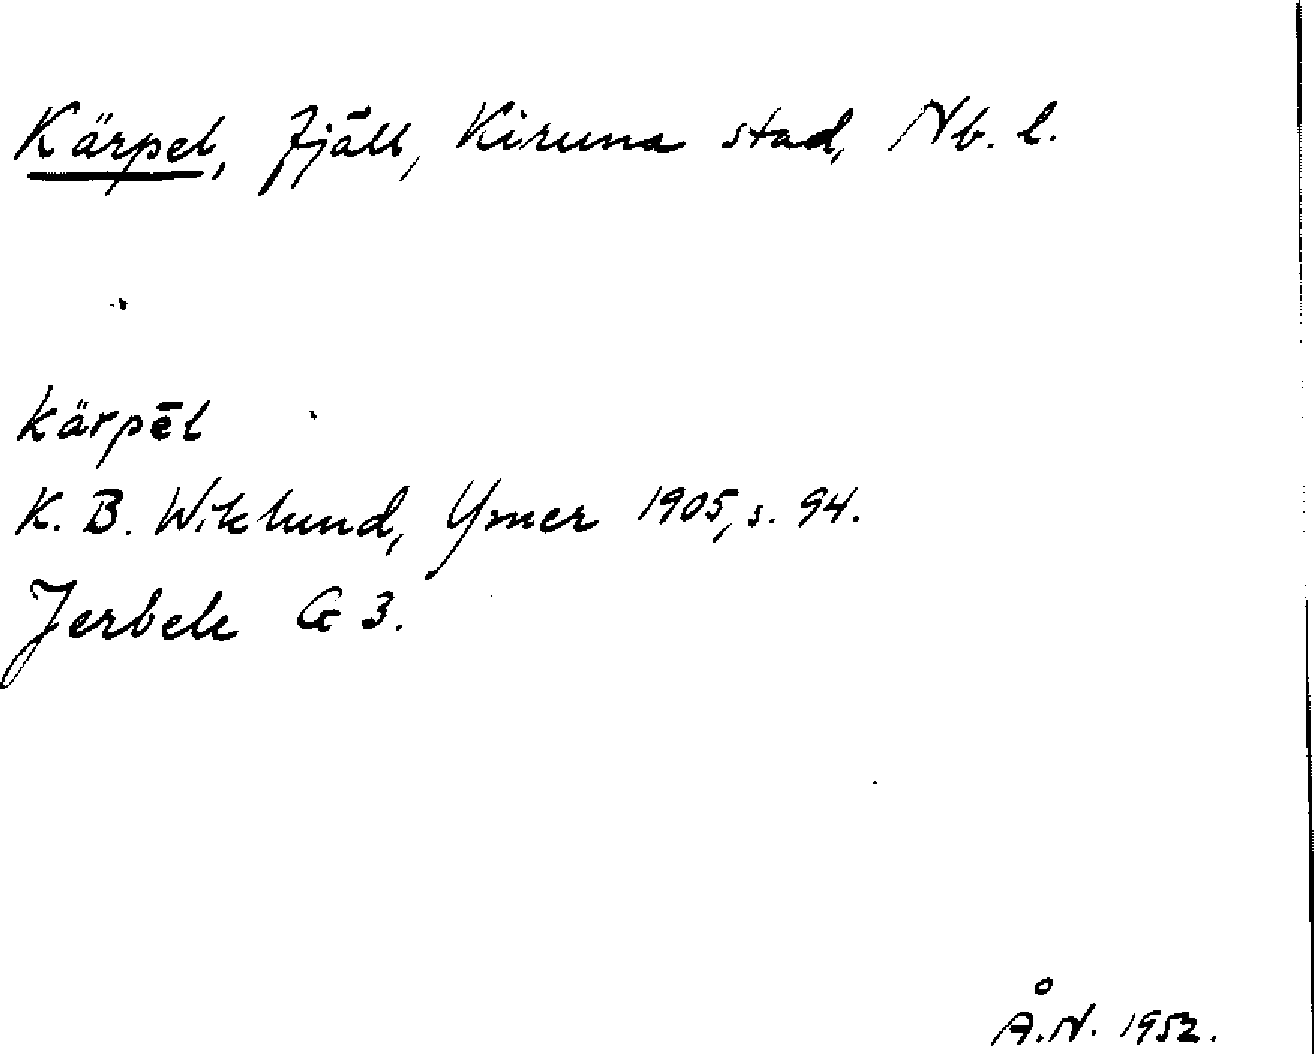 Kärpel, fjäll, Kiruna stad, Nb. l.
kärpēl
K. B. Wiklund, Ymer 1905, s. 94.
Jerbele G 3.
Å.N. 1952.